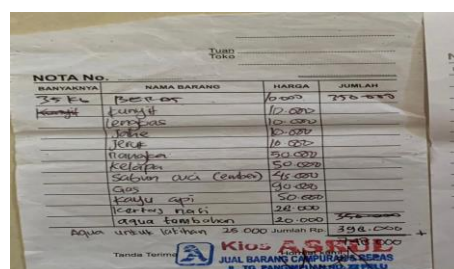 Tuan
Toko
NOTA No.
BANYAKNYA NAMA BARANG HARGA JUMLAH
35 KG BERAS 10.000 350.000
Kunyit Kunyit 10.000
Lengkuas 10.000
Jahe 10.000
Jeruk 10.000
Nangka 50.000
Kelapa 50.000
Sabun cuci (ember) 45.000
Gas 90.000
Kayu api 50.000
Kertas nasi 28.000
aqua tambahan 20.000 350.000
Aqua untuk latihan 25 000 Jumlah Rp. 398.000
Tanda Terima Kios ASRUL
JUAL BARANG CAMPURAN & BERAS